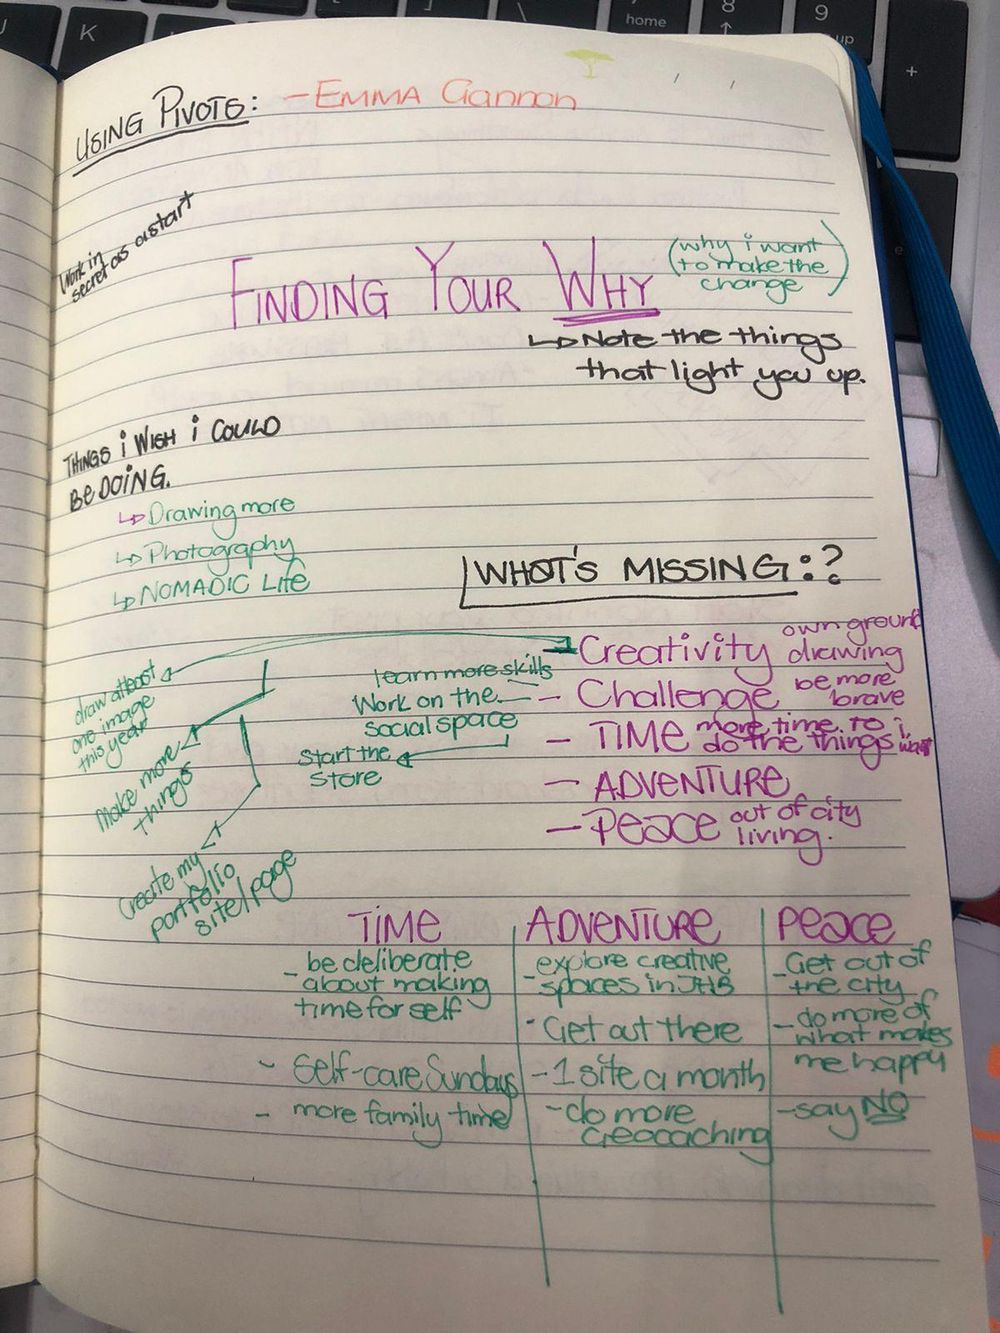 USING PIVOTS: - EMMA Gannon
Work in
secret as a start
FINDING YOUR WHY
(why i want
to make the
change)
↳ Note the things
that light you up.
THINGS i WISH i COULD
Be DOiNG.
↳ Drawing more
↳ Photography
↳ NOMADIC Life
WHAT'S MISSING:?
- Creativity own ground
drawing
- Challenge be more
brave
- TIME more time to
do the things i want
- ADVENTURE
- Peace out of city
living.
learn more skills
Work on the
social space
Start the
Store
draw atleast
one image
this year
make more
things
Create my
portfolio
site/page
TIME
- be deliberate
about making
time for self
- Self-care Sundays
- more family time
ADVENTURE
- explore creative
spaces in JHB
- Get out there
- 1 site a month
- do more
Geocaching
Peace
- Get out of
the city
- do more of
what makes
me happy
- say NO
home
8
9
up
K
+
e